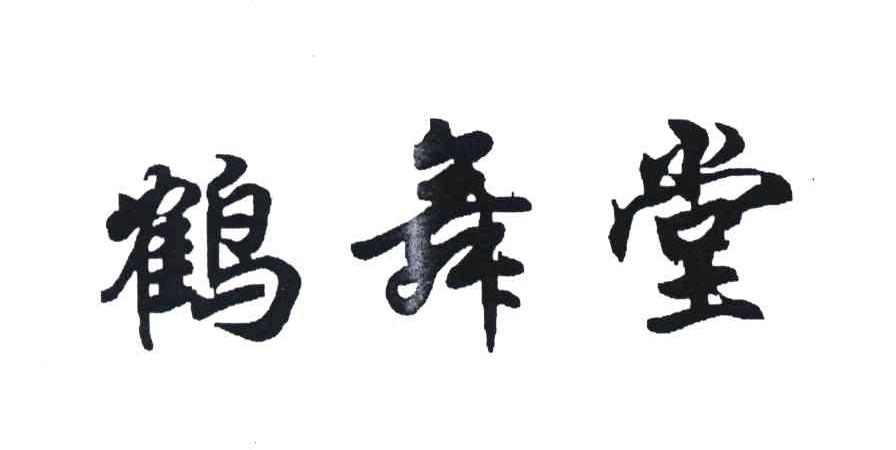 鹤舞堂